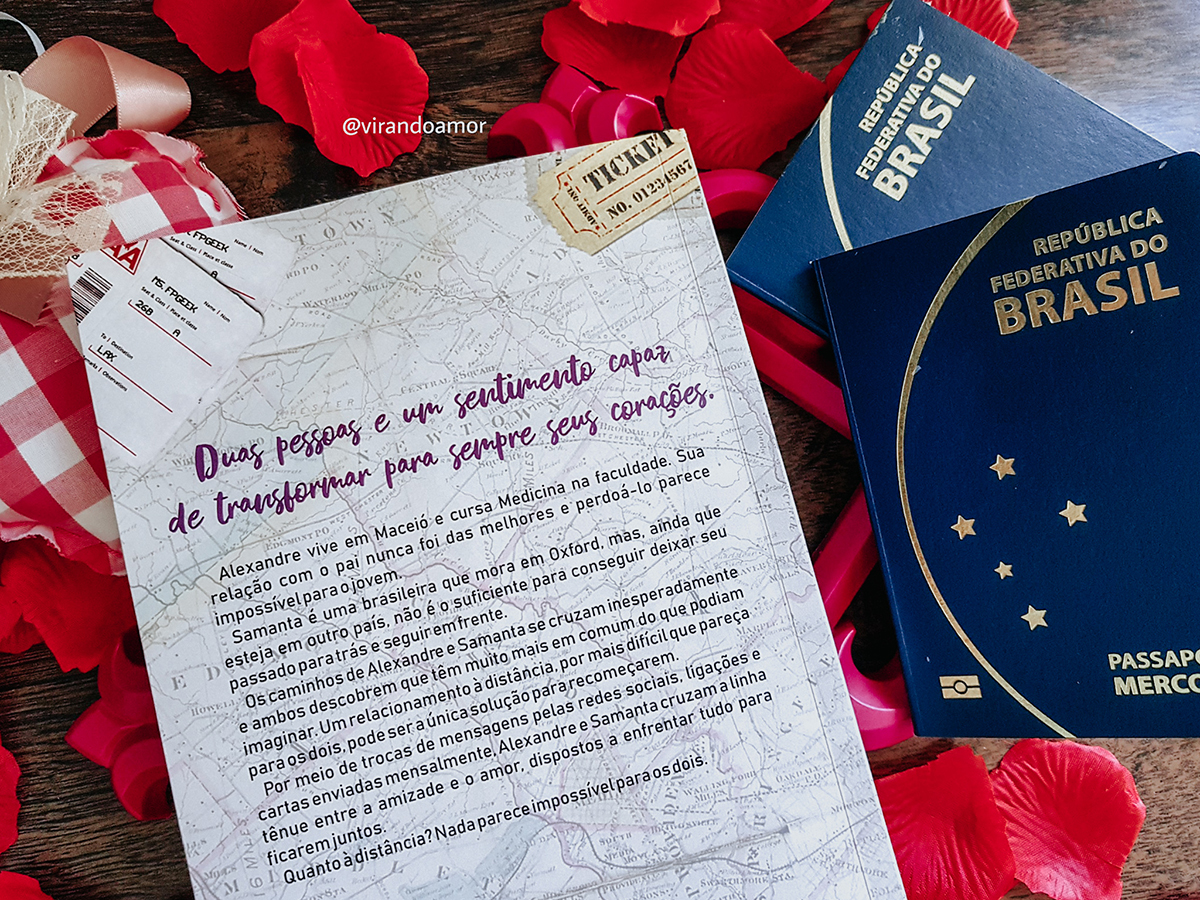 @virandoamor
TICKET
ADMIT ONE
NO. 01234567
REPÚBLICA
FEDERATIVA DO
BRASIL
REPÚBLICA
FEDERATIVA DO
BRASIL
PASSAPO
MERCO
FPGEEK
Name / Nom
Seat & Class / Place et classe
MS. FPGEEK
Name / Nom
Seat & Class / Place et classe
26B A
To / Destination
LAX
Duas pessoas e um sentimento capaz
de transformar para sempre seus corações.
Alexandre vive em Maceió e cursa Medicina na faculdade. Sua
relação com o pai nunca foi das melhores e perdoá-lo parece
impossível para o jovem.
Samanta é uma brasileira que mora em Oxford, mas, ainda que
esteja em outro país, não é o suficiente para conseguir deixar seu
passado para trás e seguir em frente.
Os caminhos de Alexandre e Samanta se cruzam inesperadamente
e ambos descobrem que têm muito mais em comum do que podiam
imaginar. Um relacionamento à distância, por mais difícil que pareça
para os dois, pode ser a única solução para recomeçarem.
Por meio de trocas de mensagens pelas redes sociais, ligações e
cartas enviadas mensalmente, Alexandre e Samanta cruzam a linha
tênue entre a amizade e o amor, dispostos a enfrentar tudo para
ficarem juntos.
Quanto à distância? Nada parece impossível para os dois.